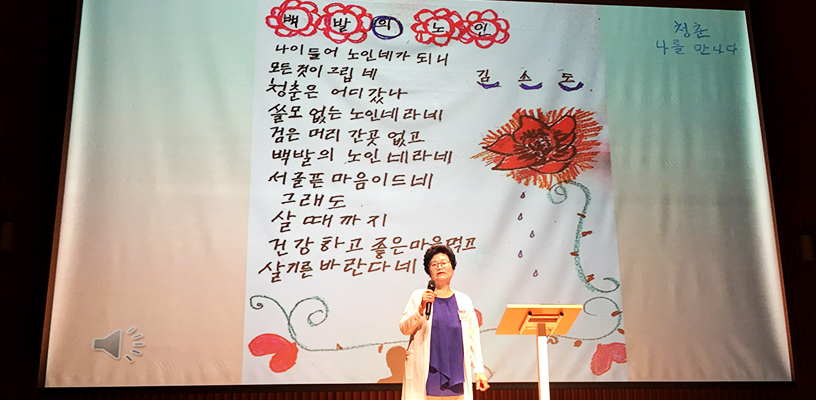 백발의 노인
청춘
나를 만나다
김 소 도
나이들어 노인네가 되니
모든것이 그립네
청춘은 어디갔나
쓸모 없는 노인네라네
검은 머리 간곳 없고
백발의 노인네라네
서글픈 마음이드네
그래도
살 때까지
건강하고 좋은마음먹고
살기른 바란다네